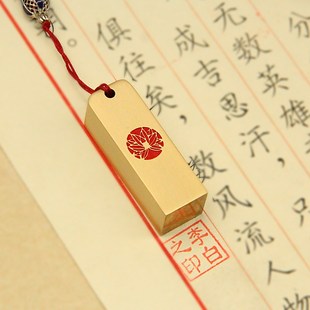 无数英雄
成吉思汗，只
俱往矣，数风流人物
李白
之印